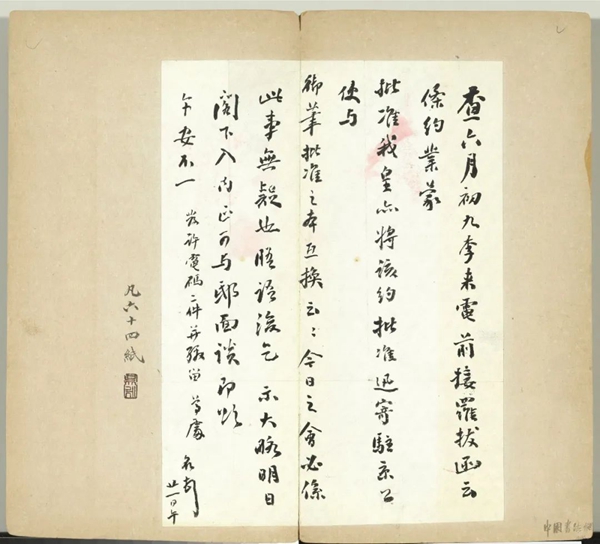 查六月初九李来電前接羅拔函云
條約業蒙
批准我皇亦将該約批准迅寄駐京公
使与
御筆批准之本互換云〻今日之會必係
此事無疑也晤語後乞示大略明日
閣下入内正可与邸面談即頌
午安不一
發許電碼二件并繳留尊處
名刻
廿一日午
凡六十四紙